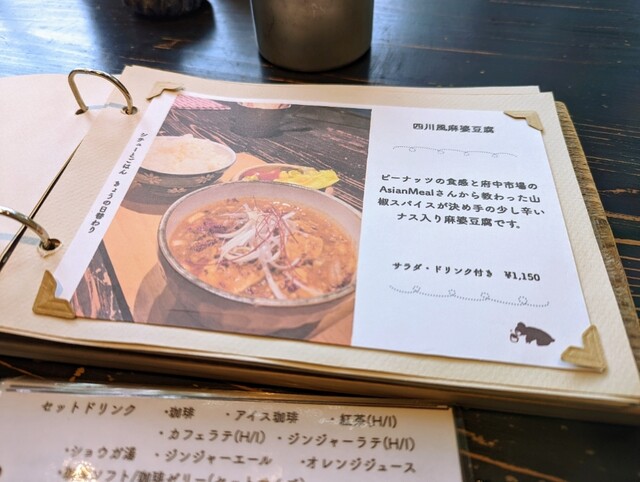 シチューとごはん きょうの日替わり
四川風麻婆豆腐
ピーナッツの食感と府中市場の
AsianMealさんから教わった山
椒スパイスが決め手の少し辛い
ナス入り麻婆豆腐です。
サラダ・ドリンク付き ¥1,150
セットドリンク ・珈琲 ・アイス珈琲 ・紅茶(H/I)
・カフェラテ(H/I) ・ジンジャーラテ(H/I)
・ショウガ湯 ・ジンジャーエール ・オレンジジュース
ソフト/珈琲ゼリー